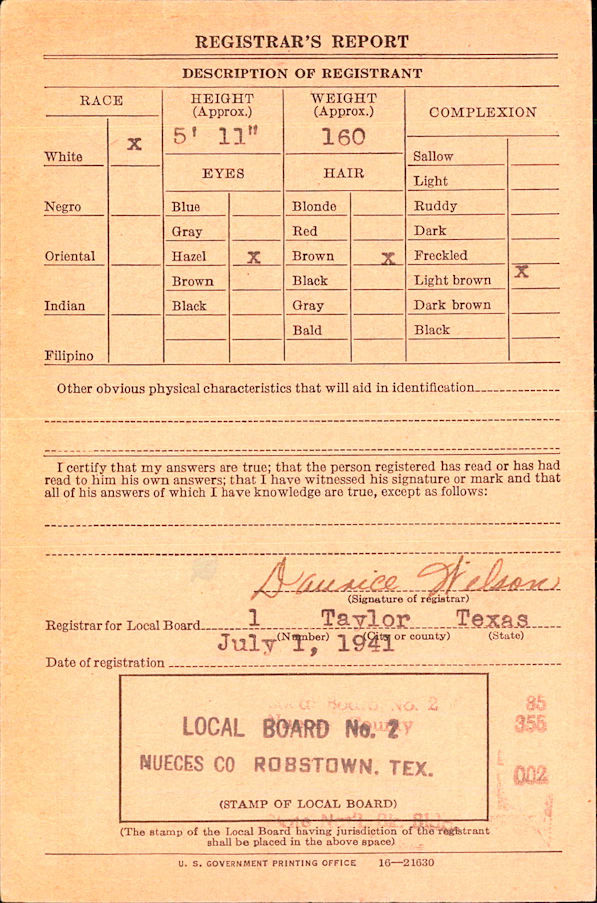 REGISTRAR'S REPORT
DESCRIPTION OF REGISTRANT
RACE
HEIGHT
(Approx.)
WEIGHT
(Approx.)
COMPLEXION
5' 11"
160
White X
EYES
HAIR
Sallow
Light
Negro
Blue
Blonde
Ruddy
Gray
Red
Dark
Oriental
Hazel X
Brown X
Freckled
Brown
Black
Light brown X
Indian
Black
Gray
Dark brown
Bald
Black
Filipino
Other obvious physical characteristics that will aid in identification
I certify that my answers are true; that the person registered has read or has had
read to him his own answers; that I have witnessed his signature or mark and that
all of his answers of which I have knowledge are true, except as follows:
Wilson
(Signature of registrar)
Registrar for Local Board 1 Taylor Texas
(Number) (City or county) (State)
July 1, 1941
Date of registration
Local Board No. 2 85
LOCAL BOARD No. 2 355
County
NUECES CO ROBSTOWN. TEX. 002
(STAMP OF LOCAL BOARD)
(The stamp of the Local Board having jurisdiction of the registrant
shall be placed in the above space)
U. S. GOVERNMENT PRINTING OFFICE 16—21630